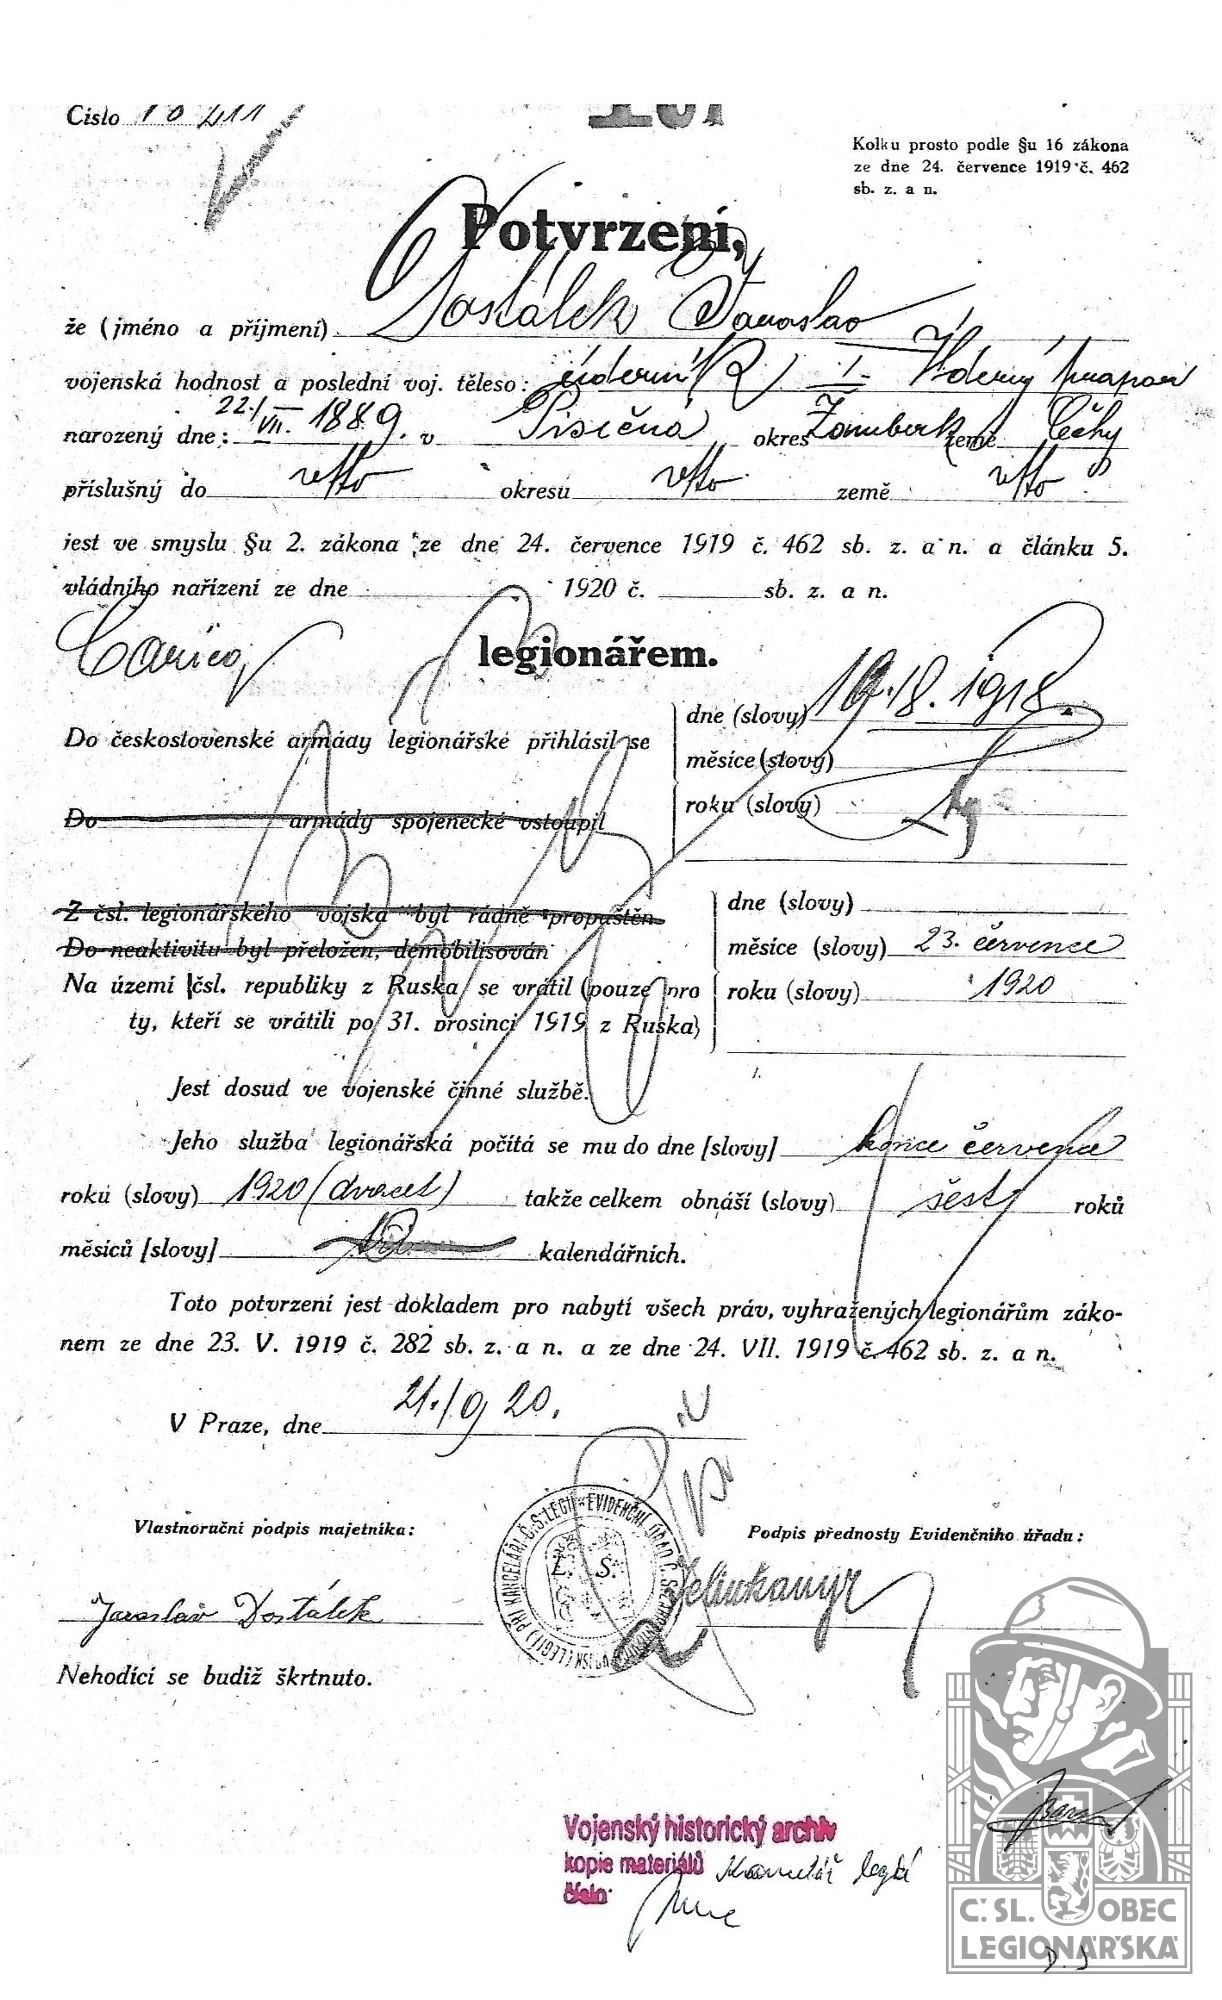 Číslo 10411
Kolku prosto podle §u 16 zákona
ze dne 24. července 1919 č. 462
sb. z. a n.
Potvrzení,
že (jméno a příjmení) Dostálek Jaroslav
vojenská hodnost a poslední voj. těleso: úderník I. Úderný prapor
narozený dne: 22./VII. 1889. v Písečná okres Žamberk země Čechy
příslušný do okresu země
jest ve smyslu §u 2. zákona ze dne 24. července 1919 č. 462 sb. z. a n. a článku 5.
vládního nařízení ze dne 1920 č. sb. z. a n.
legionářem.
Do československé armády legionářské přihlásil se
dne (slovy) 18. 1918.
měsíce (slovy)
roku (slovy)
Do armády spojenecké vstoupil
Z čsl. legionářského vojska byl řádně propuštěn
Do neaktivity byl přeložen, demobilisován
Na území čsl. republiky z Ruska se vrátil (pouze pro
ty, kteří se vrátili po 31. prosinci 1919 z Ruska)
dne (slovy)
měsíce (slovy) 23. července
roku (slovy) 1920
Jest dosud ve vojenské činné službě.
Jeho služba legionářská počítá se mu do dne [slovy] konce července
roku (slovy) 1920 (dvacet) takže celkem obnáší (slovy) šest roků
měsíců [slovy] kalendářních.
Toto potvrzení jest dokladem pro nabytí všech práv, vyhražených legionářům záko-
nem ze dne 23. V. 1919 č. 282 sb. z. a n. a ze dne 24. VII. 1919 č. 462 sb. z. a n.
V Praze, dne 21./9 20.
Vlastnoruční podpis majetníka:
Podpis přednosty Evidenčního úřadu:
Jaroslav Dostálek
Nehodící se budiž škrtnuto.
Vojenský historický archiv
kopie materiálů Kancelář legií
číslo
Č. SL. OBEC
LEGIONÁŘSKÁ